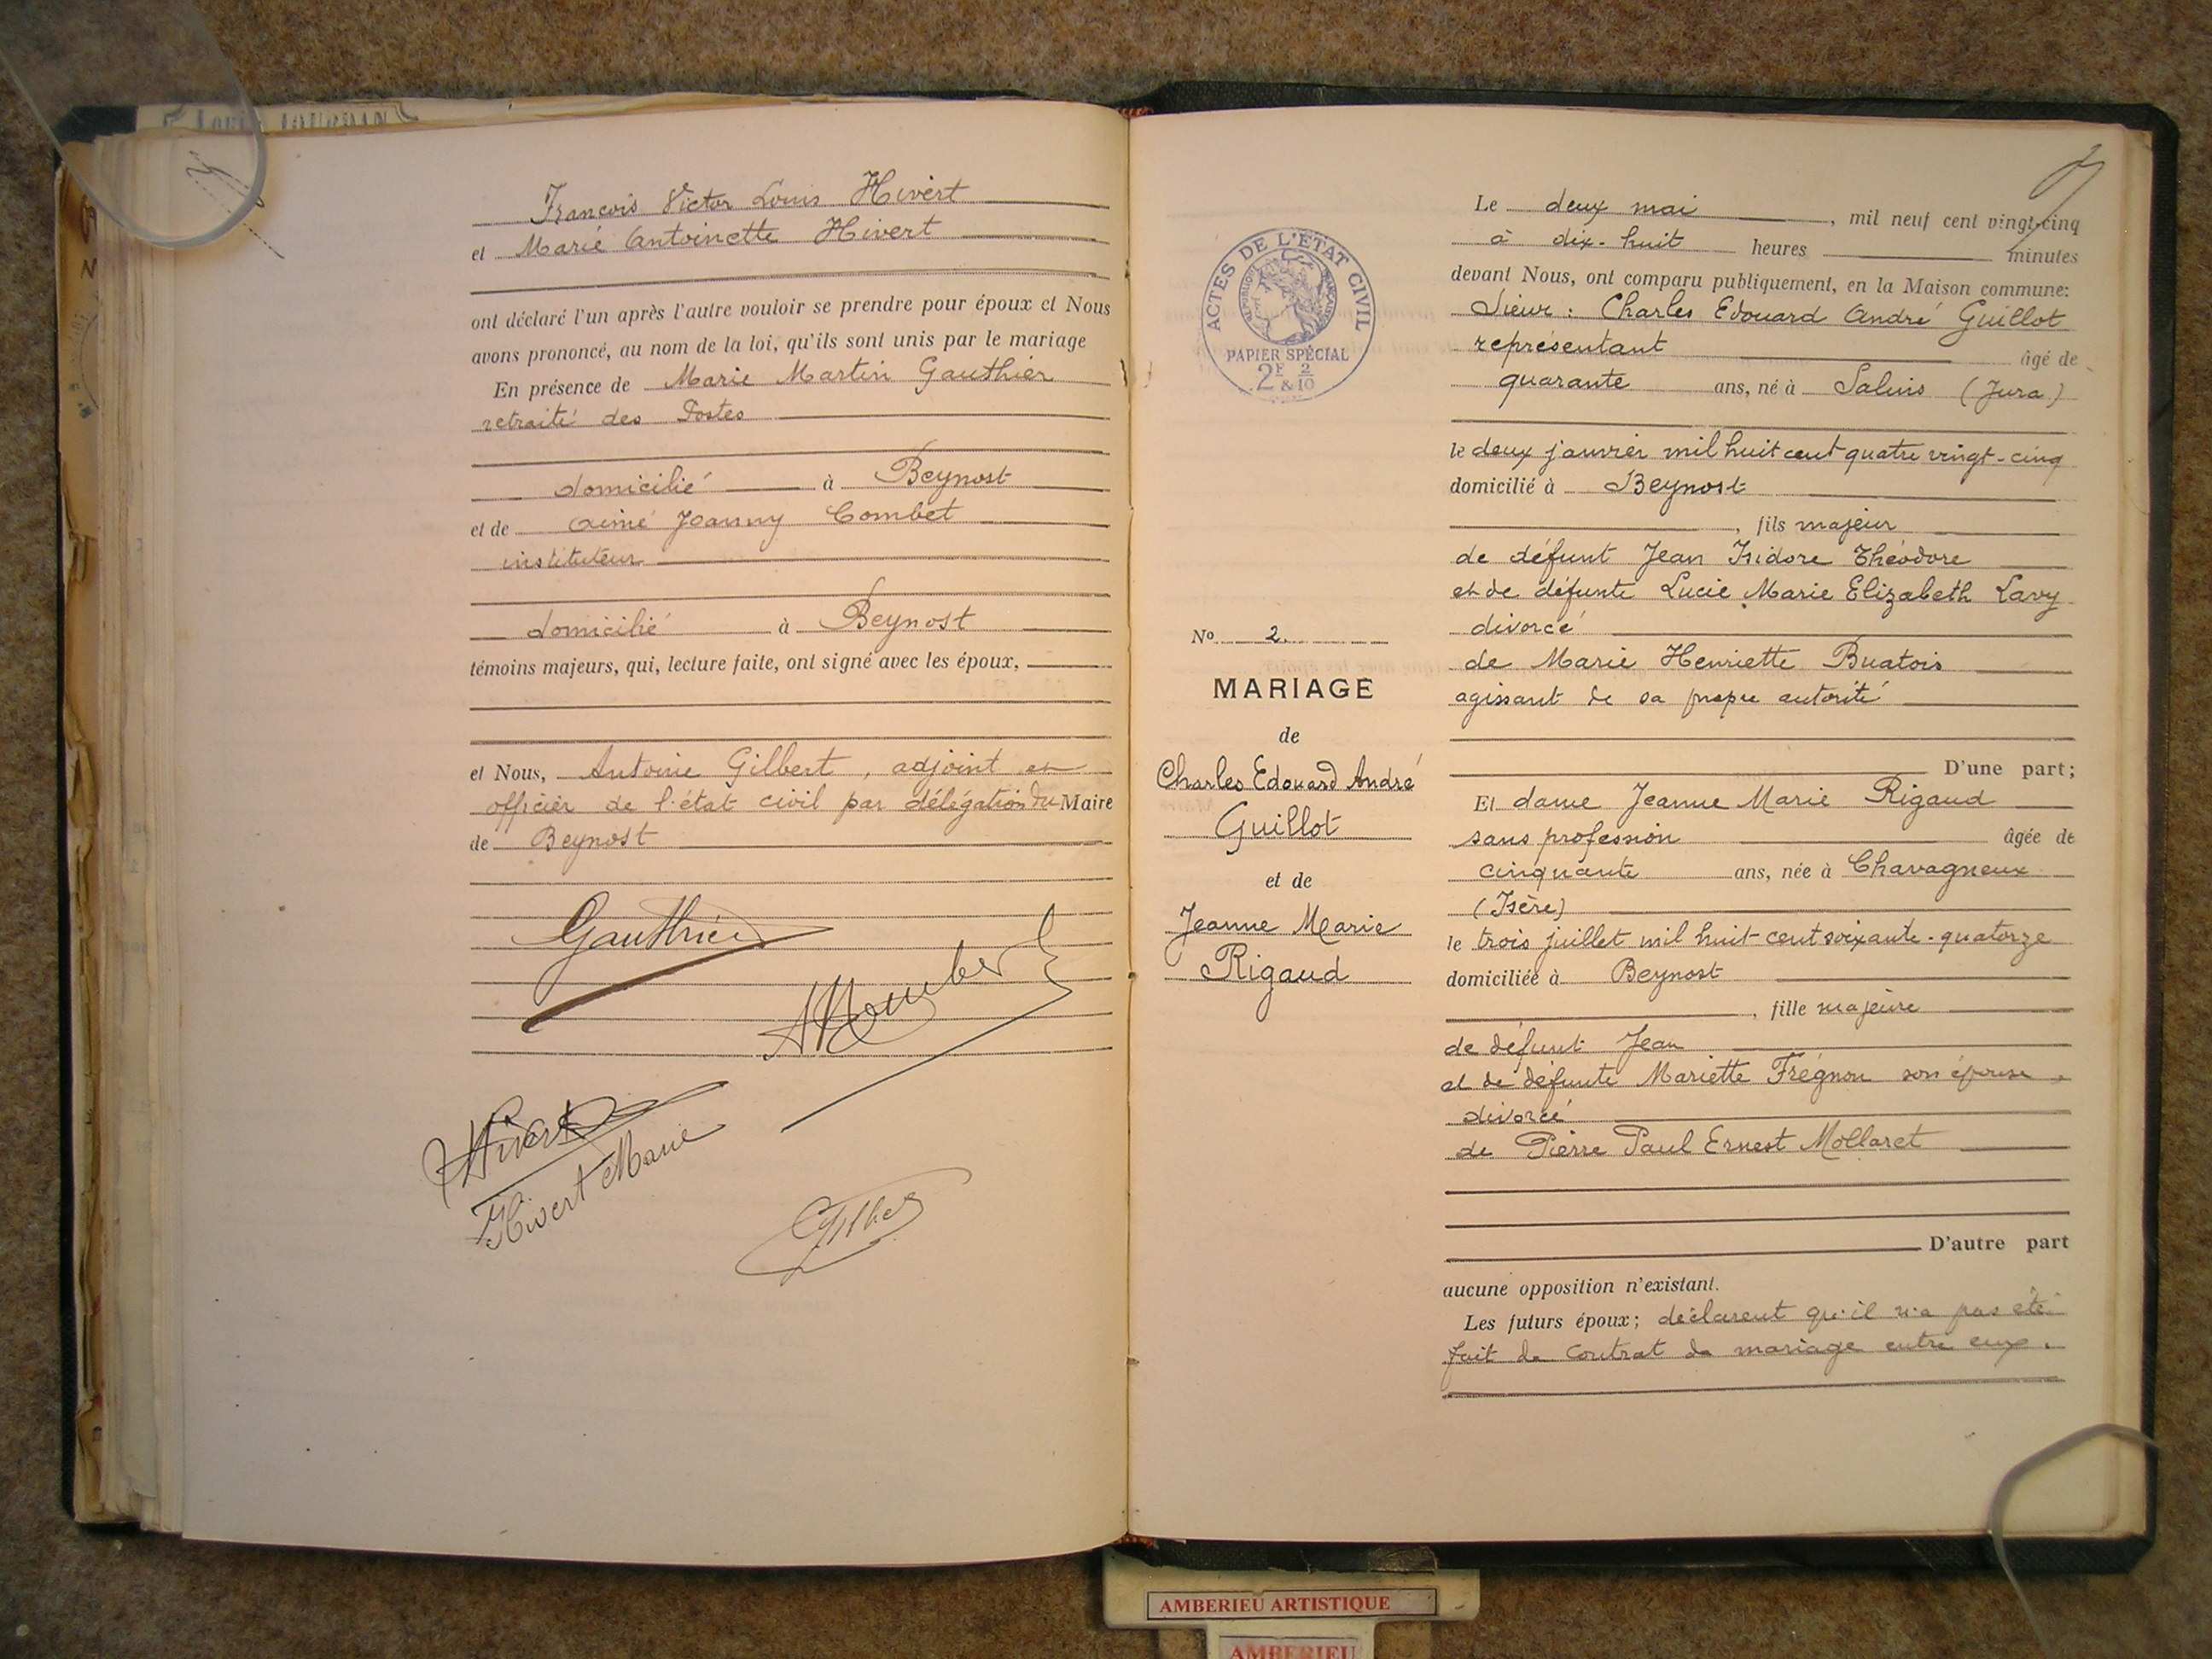 François Victor Louis Hivert
et Marie Antoinette Hivert
ont déclaré l'un après l'autre vouloir se prendre pour époux et Nous
avons prononcé, au nom de la loi, qu'ils sont unis par le mariage
En présence de Marie Martin Gauthier
retraité des Postes
domicilié à Beynost
et de Aimé Joanny Combet
instituteur
domicilié à Beynost
témoins majeurs, qui, lecture faite, ont signé avec les époux,
et Nous, Antoine Gilbert, adjoint et
officier de l'état civil par délégation du Maire
de Beynost
Gauthier
Hivert
Hivert Marie
ACTES DE L'ÉTAT CIVIL
RÉPUBLIQUE FRANÇAISE
PAPIER SPÉCIAL
2F & 2/10
No 2.
MARIAGE
de
Charles Edouard André
Guillot
et de
Jeanne Marie
Rigaud
Le deux mai, mil neuf cent vingt-cinq
à dix-huit heures minutes
devant Nous, ont comparu publiquement, en la Maison commune:
Sieur : Charles Edouard André Guillot
représentant âgé de
quarante ans, né à Salins (Jura)
le deux janvier mil huit cent quatre vingt-cinq
domicilié à Beynost
, fils majeur
de défunt Jean Isidore Théodore
et de défunte Lucie Marie Elizabeth Lavy
divorcé
de Marie Henriette Buatois
agissant de sa propre autorité
D'une part;
Et dame Jeanne Marie Rigaud
sans profession âgée de
cinquante ans, née à Chavagneux
(Isère)
le trois juillet mil huit cent soixante-quatorze
domiciliée à Beynost
, fille majeure
de défunt Jean
et de défunte Mariette Frégnon son épouse,
divorcé
de Pierre Paul Ernest Mollaret
D'autre part
aucune opposition n'existant.
Les futurs époux; déclarent qu'il n'a pas été
fait de contrat de mariage entre eux.
AMBERIEU ARTISTIQUE
AMBERIEU